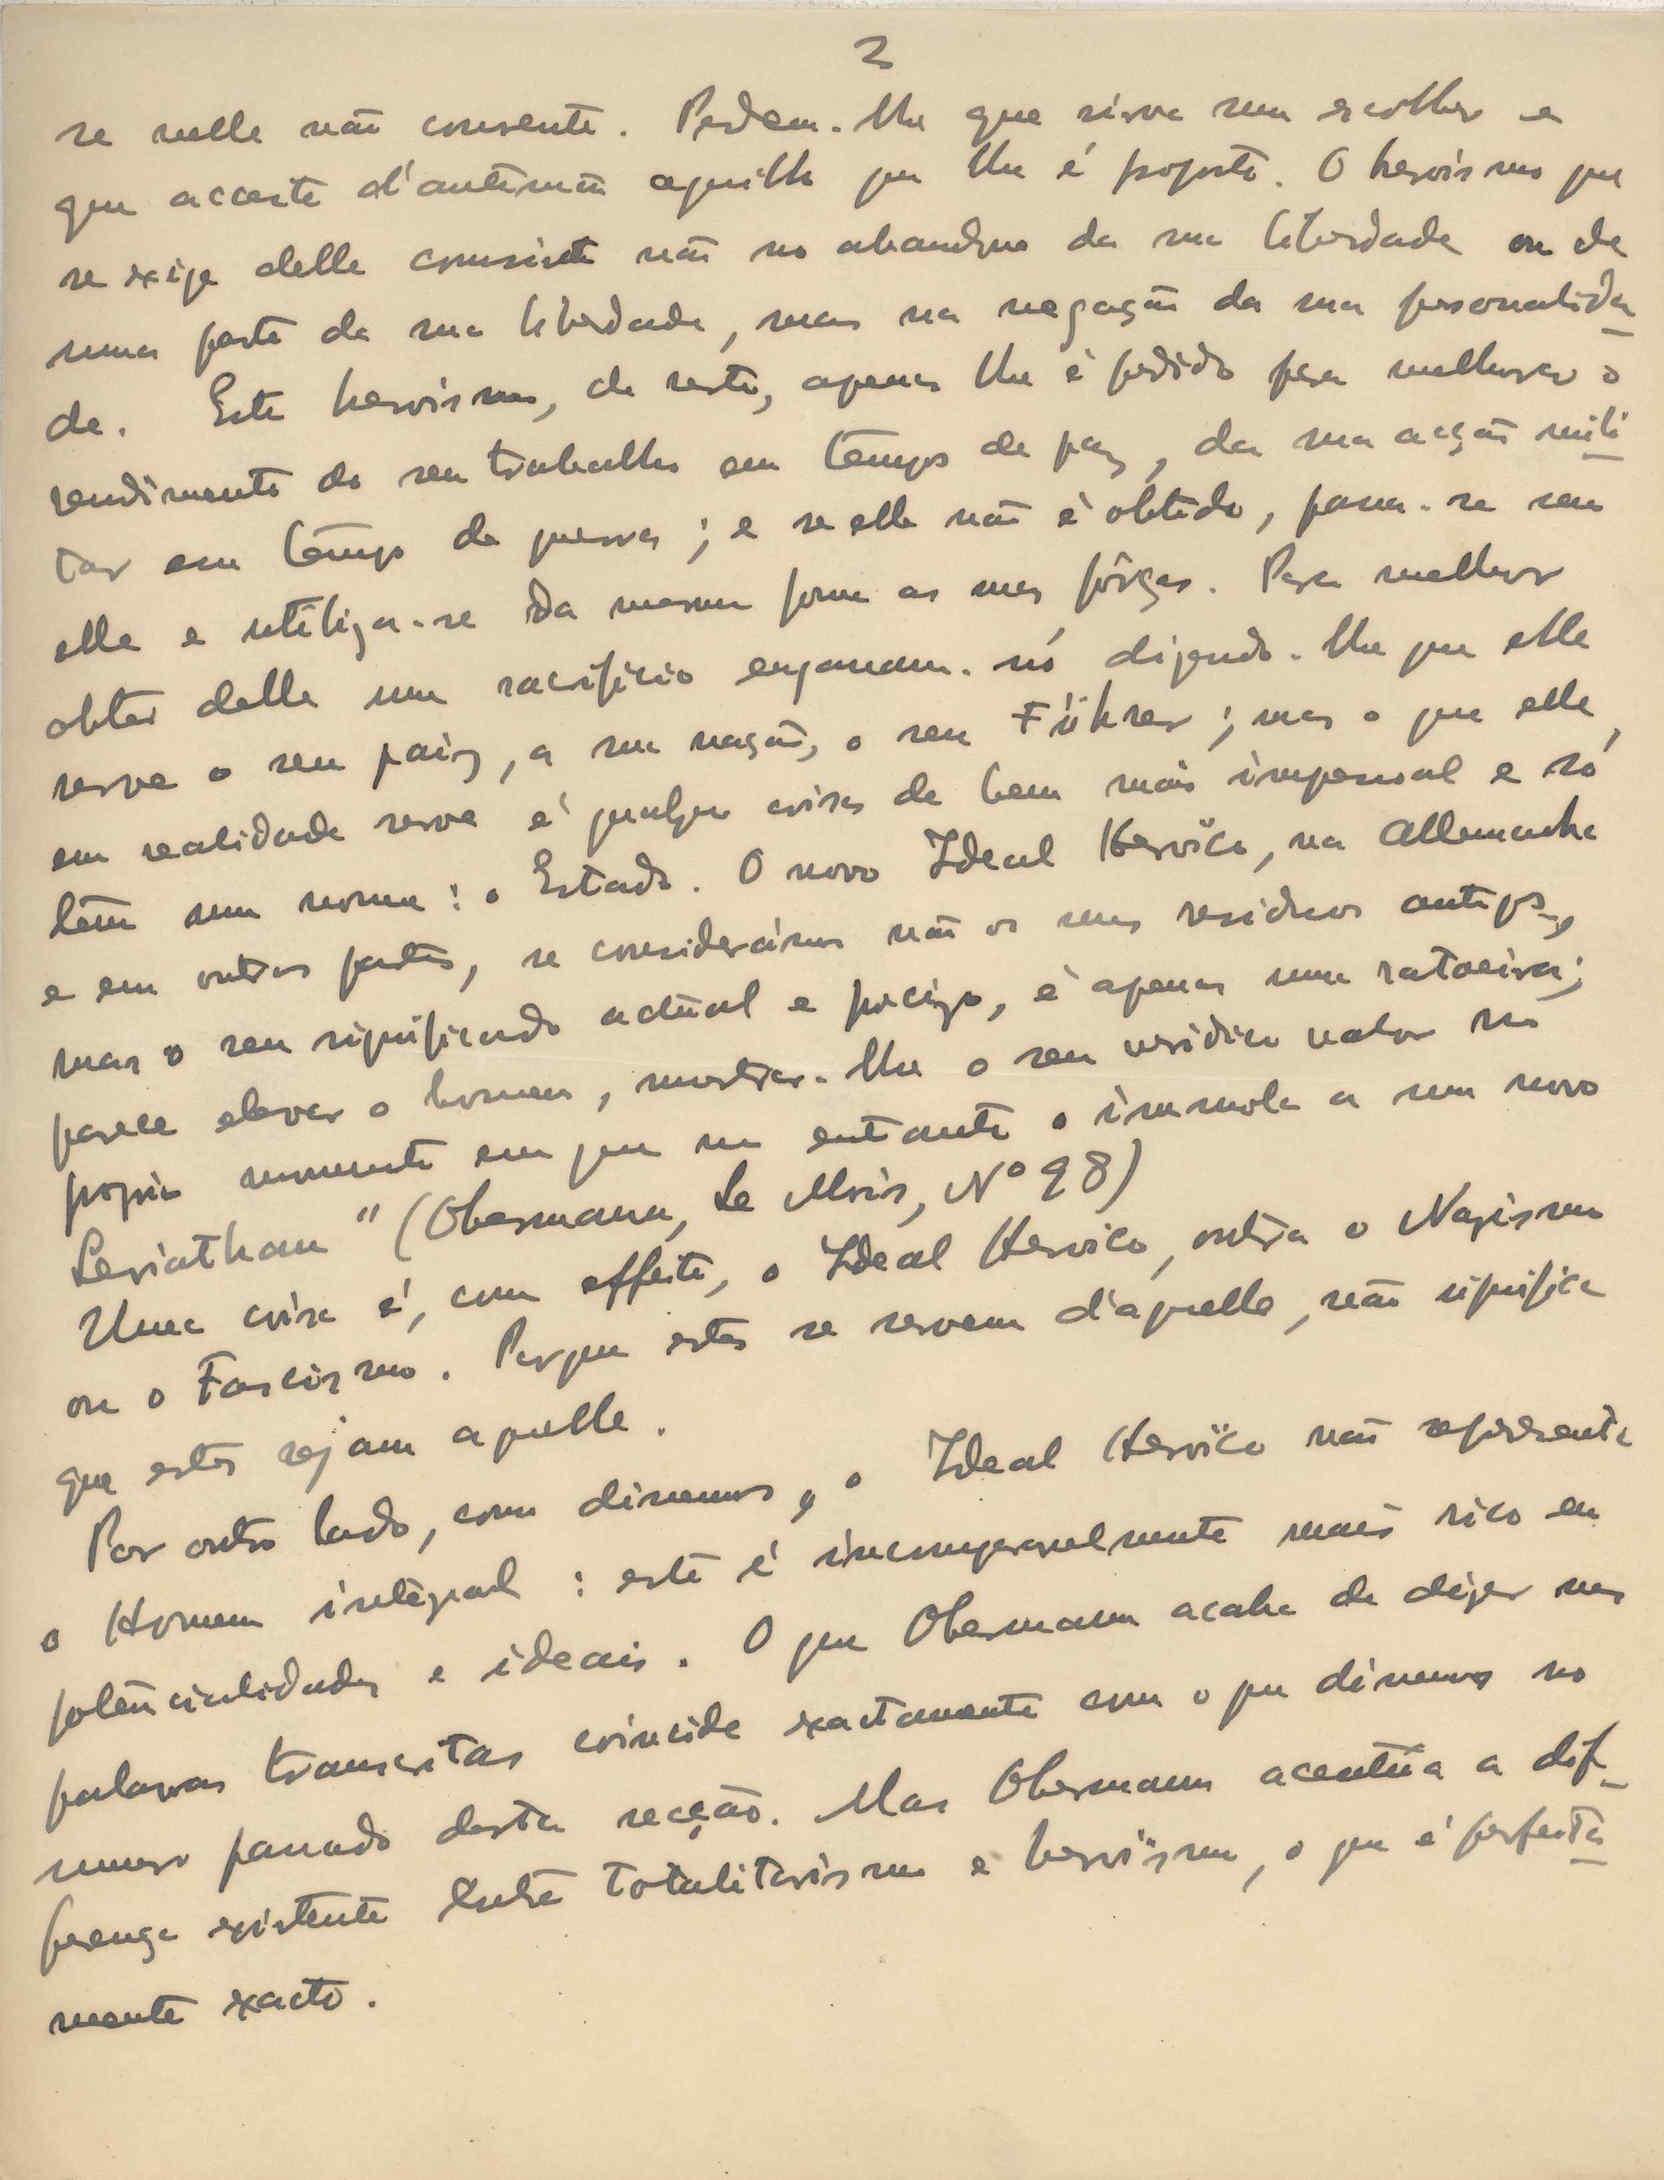 2
se nelle não consente. Pedem-lhe que sirva sem escolher e
que acceite d'antemão aquillo que lhe é proposto. O heroismo que
se exige delle consiste não no abandono da sua liberdade ou de
uma parte da sua liberdade, mas na negação da sua personalida-
de. Este heroismo, de resto, apenas lhe é pedido para melhorar o
rendimento do seu trabalho em tempo de paz, da sua acção mili-
tar em tempo de guerra; e se elle não é obtido, passa-se sem
elle e utiliza-se da mesma forma as suas fôrças. Para melhor
obter delle um sacrificio enganam-nó dizendo-lhe que elle
serve o seu paiz, a sua nação, o seu Führer; mas o que elle,
em realidade serve é qualquer coisa de bem mais impessoal e só
têm um nome: o Estado. O novo Ideal Heroïco, na Allemanha
e em outras partes, se considerármos não os seus residuos antigos,
mas o seu significado actual e precizo, é apenas uma ratoeira;
parece elevar o homem, mostrar-lhe o seu veridico valor no
proprio momento em que no entanto o immola a um novo
Leviathan" (Obermann, Le Mois, Nº 98)
Uma coisa é, com effeito, o Ideal Heroico, outra o Nazismo
ou o Fascismo. Porque estes se servem d'aquelle, não significa
que estes sejam aquelle.
Por outro lado, como dissemos, o Ideal Heroïco não representa
o Homem integral: este é incomparavelmente mais rico em
potencialidades e ideais. O que Obermann acaba de dizer nas
palavras transcritas coincide exactamente com o que dissemos no
numero passado desta secção. Mas Obermann acentúa a dif-
ferença existente entre totalitarismo e heroïsmo, o que é perfeita-
mente exacto.